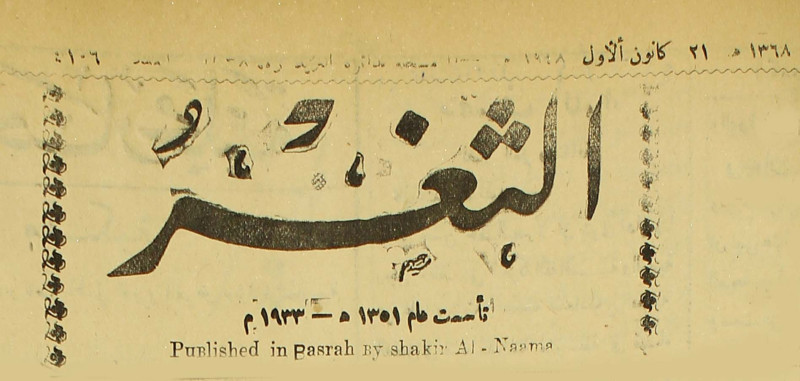 ١٣٦٨ هـ ٢١ كانون ألأول ١٩٤٨ م
الثغر
تأسست عام ١٣٥١ هـ — ١٩٣٣ م
Published in Basrah By shakir Al - Naama